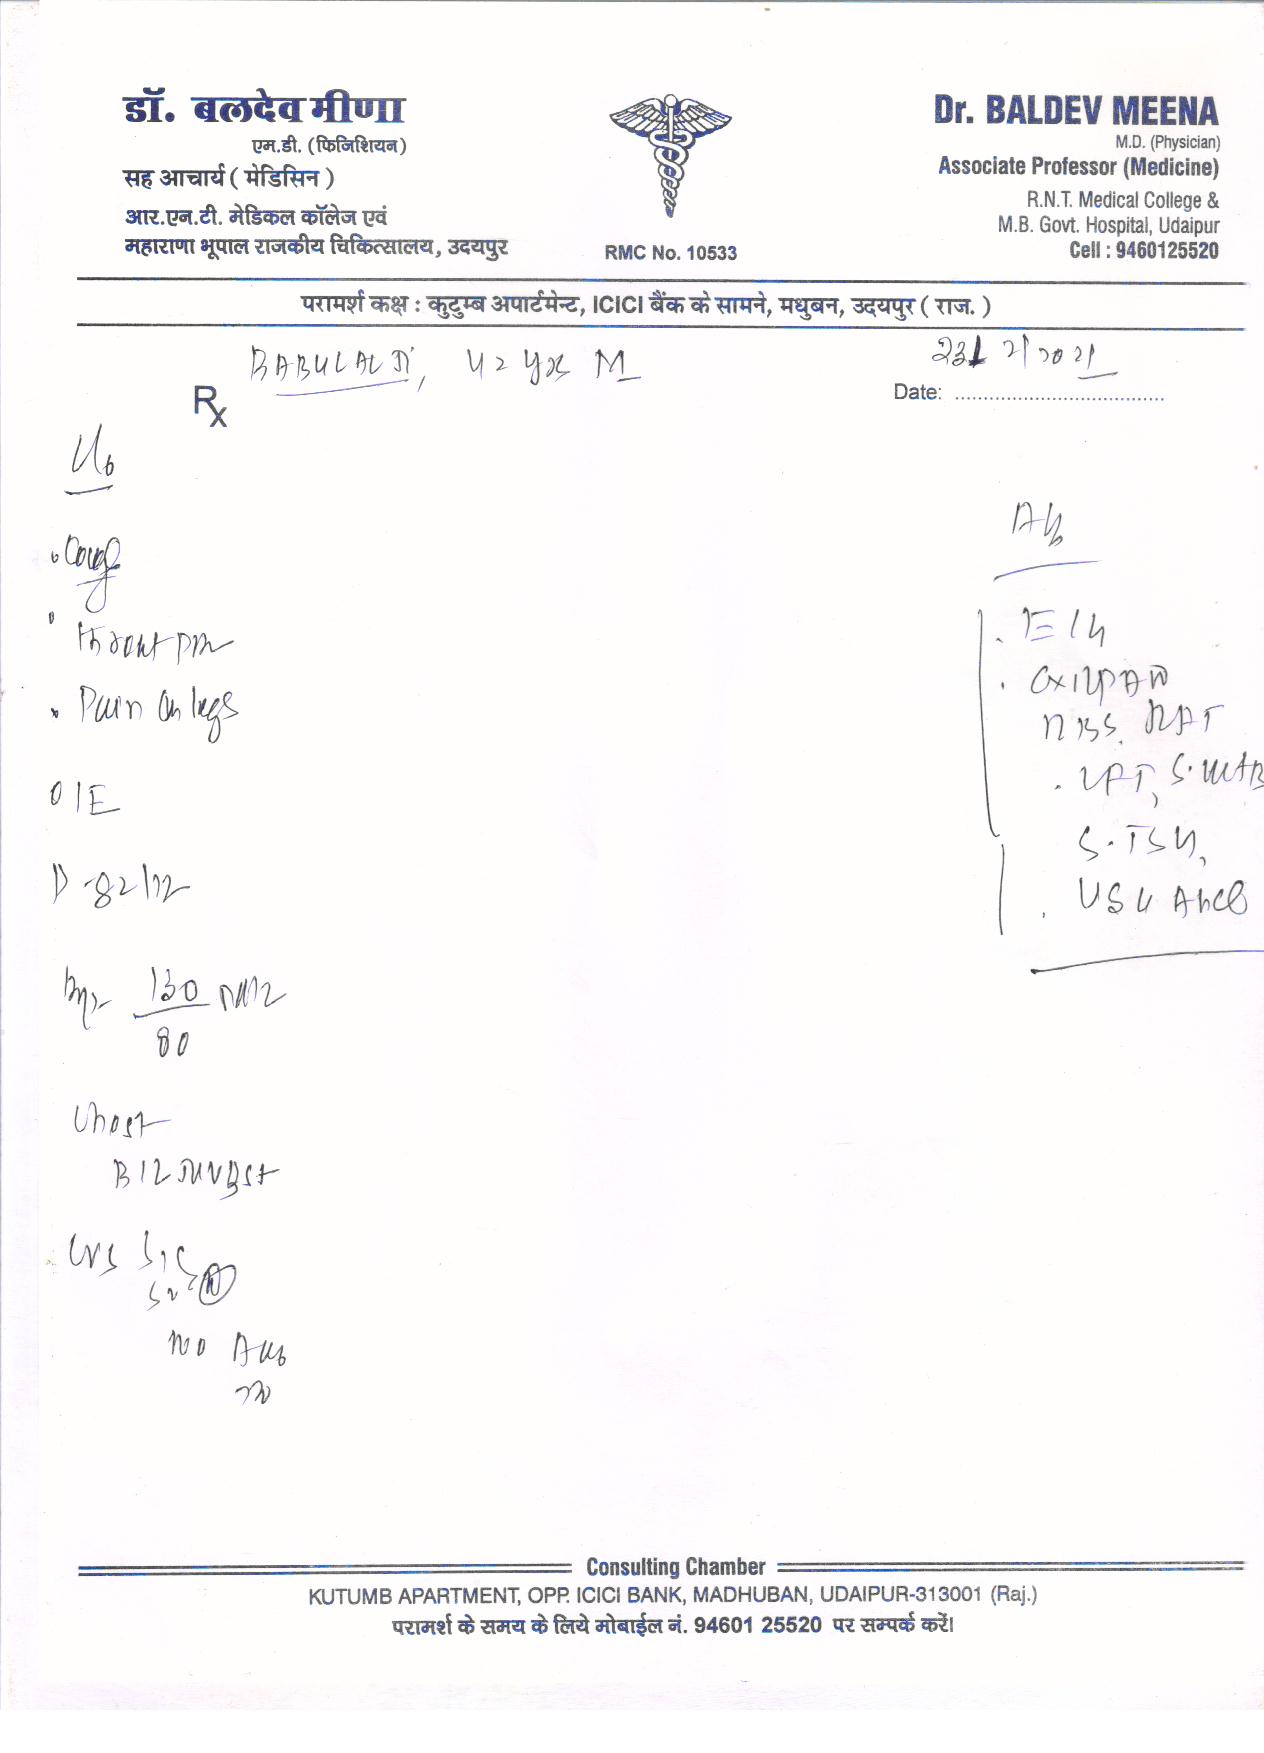 डॉ. बलदेव मीणा
एम.डी. (फिजिशियन)
सह आचार्य ( मेडिसिन )
आर.एन.टी. मेडिकल कॉलेज एवं
महाराणा भूपाल राजकीय चिकित्सालय, उदयपुर
RMC No. 10533
Dr. BALDEV MEENA
M.D. (Physician)
Associate Professor (Medicine)
R.N.T. Medical College &
M.B. Govt. Hospital, Udaipur
Cell : 9460125520
परामर्श कक्ष : कुटुम्ब अपार्टमेन्ट, ICICI बैंक के सामने, मधुबन, उदयपुर ( राज. )
BABULAL JI, 42 yrs M
23/2/2021
Rx
Date: ....................................
C/o
• Cough
• Throat pain
• Pain in legs
O/E
P - 82/m
Bp - 130/80 mmHg
Chest
B/L
CVS S1 S2 N
No
Adv
. ECG
. CXR PA
RBS, RFT
. LFT,
S. TSH,
. USG Abd
Consulting Chamber
KUTUMB APARTMENT, OPP. ICICI BANK, MADHUBAN, UDAIPUR-313001 (Raj.)
परामर्श के समय के लिये मोबाईल नं. 94601 25520 पर सम्पर्क करें।